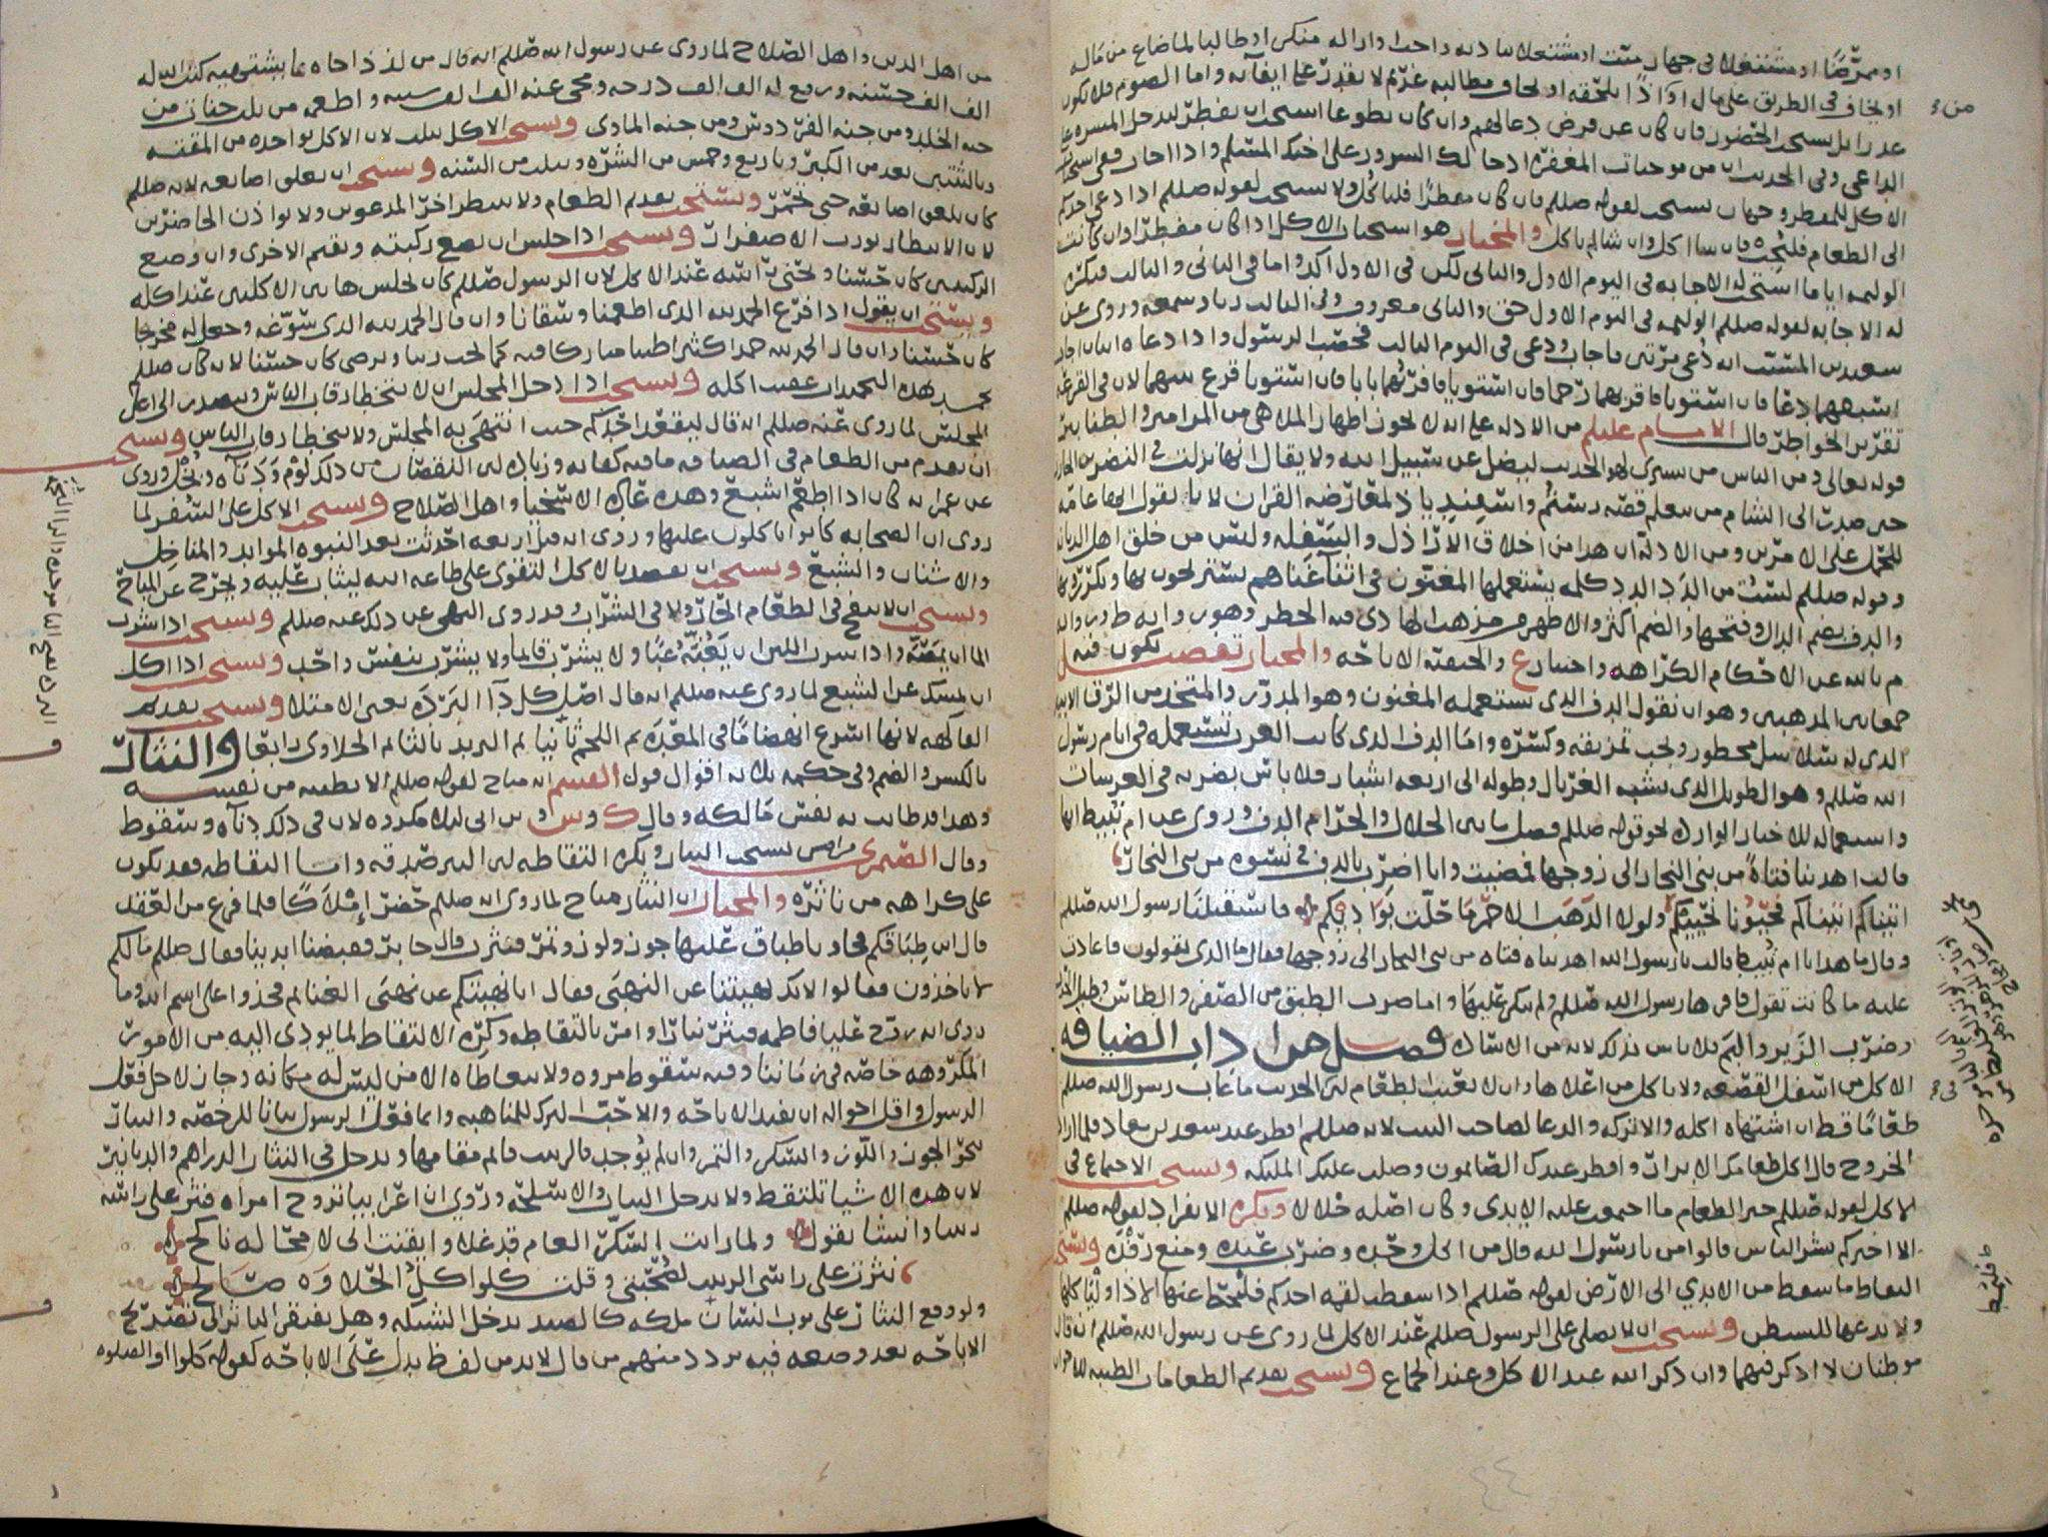 او ممرضا او مشتغلا في جهاز ميت او مشتغلا بتاديه واجب او ازاله منكر او طالبا لما ضاع من ماله
او يخاف في الطريق على مال او اذا يلحقه او يخاف مطالبه غريم لا يقدر على ايفائه واما الصوم فلا يكون
عذرا بل يستحب الحضور فان كان عن فرض دعا لهم وان كان تطوعا استحب ان يفطر ليدخل المسره على
الداعي وفي الحديث ان من موجبات المغفره ادخالك السرور على اخيك المسلم واذا
الاكل للمفطر وجهان يستحب لقوله صللم فان كان مفطرا فلياكل ولا يستحب لقوله صللم اذا دعي احدكم
الى الطعام فليجب فان شا اكل وان شا لم ياكل والمختار هو استحباب الاكل اذا كان مفطرا وان كانت
الوليمه اياما استحب له الاجابه في اليوم الاول والثاني لكن في الاول آكد واما في الثاني والثالث فيكره
له الاجابه لقوله صللم الوليمه في اليوم الاول حق والثاني معروف وفي الثالث رياء وسمعه وروي عن
سعيد بن المسيب انه دعي مرتين فاجاب ودعي في اليوم الثالث فحصب الرسول واذا دعاه اثنان اجاب
اسبقهما دعا فان استويا فاقربهما رحما فان استويا فاقربهما بابا فان استويا قرع بينهما لان في القرعه
تقرير الخواطر قال الامام عليلم من الادله على انه لا يجوز اظهار الملاهي من المزامير والطنابير
قوله تعالى ومن الناس من يشتري لهو الحديث ليضل عن سبيل الله ولا يقال انها نزلت في النضر بن الحارث
حين صدر الى الشام من يعلم قصه رستم واسفنديار لمعارضه القران لانا نقول انها عامه
للحمل على الامرين ومن الادله ان هذا من اخلاق الاراذل والسفله وليس من خلق اهل الديانه
وقوله صللم لست من الدد الدد كلمه يستعملها المغنون في اثناء غناهم يستريحون بها ويكررونها
والدف بضم الدال وفتحها والضم اكثر والاظهر من مذهب الهادي فيه الحظر وهو
م بالله عن الاحكام الكراهه واختاره ع والحنفيه الاباحه والمختار تفصيل يكون فيه
جمعا بين المذهبين وهو ان نقول الدف الذي تستعمله المغنون وهو المدور والمتخذ من الرق الابيض
الذي له سلاسل محظور ويجب تمزيقه وكسره واما الدف الذي كانت العرب تستعمله في ايام رسول
الله صللم وهو الطويل الذي يشبه الغربال وطوله الى اربعه اشبار فلا باس بضربه في العرسات
واستعماله للاخبار الوارده نحو قوله صللم فصل ما بين الحلال والحرام الدف وروي عن ام نبيط انها
قالت اهدينا فتاة من بني النجار الى زوجها فمضيت وانا اضرب بالدف في نسوه من بني النجار
اتيناكم اتيناكم فحيونا نحييكم ولولا الذهب الاحمر ما حلت بواديكم فاستقبلنا رسول الله صللم
وقال ما هذا يا ام نبيط قالت يا رسول الله اهدينا فتاه من بني النجار الى زوجها فقال ما الذي تقولون فاعادت
عليه ما كانت تقول فاقرها رسول الله صللم ولم ينكر عليها واما ضرب الطبق من الصفر والطاس وطبل
وضرب الزير والبم فلا باس بذلك لانه من فصل من اداب الضيافه
الاكل من اسفل القصعه ولا ياكل من اعلاها وان لا يعيب الطعام لخبر الحديث ما عاب رسول الله صللم
طعاما قط ان اشتهاه اكله والا تركه والدعا لصاحب البيت لانه صللم افطر عند سعد بن معاذ فلما اراد
الخروج قال اكل طعامك الابرار وافطر عندك الصائمون وصلت عليك المليكه ويستحب الاجتماع في
الاكل لقوله صللم خير الطعام ما اجتمعت عليه الايدي وكان اصله حلالا ويكره الانفراد لقوله صللم
الا اخبركم بشر الناس قالوا من يا رسول الله قال من اكل وحده وضرب عبده ومنع رفده ويستحب
التقاط ما سقط من الايدي الى الارض لقوله صللم اذا سقطت لقمه احدكم فليمط عنها الاذا وليأكلها
ولا يدعها للشيطان ويستحب ان لا يصلي على الرسول صللم عند الاكل لما روي عن رسول الله صللم انه قال
موطنان لا اذكر فيهما وان ذكر الله عند الاكل وعند الجماع ويستحب تقديم الطعامات الطيبه للاخوان
من اهل الدين واهل الصلاح لما روي عن رسول الله صللم انه قال من لذذ اخاه بما يشتهيه كتب الله له
الف الف حسنه ورفع له الف الف درجه ومحي عنه الف الف سيئه واطعمه من ثلاث جنات من
جنه الخلد ومن جنه الفردوس ومن جنه الماوى ويستحب الاكل بثلاث لان الاكل بواحده من المقت
وبالثنتين يعد من الكبر وباربع وخمس من الشره وبثلاث من السنه ويستحب ان يلعق اصابعه لانه صللم
كان يلعق اصابعه حتى تحمر ويستحب تقديم الطعام ولا ينتظر اخر المدعوين ولا بواذن الحاضرين
لان الانتظار يورث الاصفرار ويستحب اذا جلس ان يضع ركبته ويقيم الاخرى وان وضع
الركبتين كان حسنا ويحني راسه عند الاكل لان الرسول صللم كان يجلس هاتين الاكلتين عند اكله
ويستحب ان يقول اذا فرغ الحمد لله الذي اطعمنا وسقانا وان قال الحمد لله الذي سوغه وجعل له مخرجا
كان حسنا وان قال الحمد لله حمدا كثيرا طيبا مباركا فيه كما يحب ربنا ويرضى كان حسنا لانه كان صللم
يحمد بهذه التحميدات عقيب اكله ويستحب اذا دخل المجلس ان لا يتخطا رقاب الناس ويصدر الى اعلى
المجلس لما روي عنه صللم انه قال ليقعد احدكم حيث انتهى به المجلس ولا يتخطا رقاب الناس ويستحب
ان يقدم من الطعام في الضيافه ما فيه كفايه وزياده لان النقصان من ذلك لؤم ودناه وبخل وروي
عن عمر انه كان اذا اطعم اشبع وهذه عاده الاسخيا واهل الصلاح ويستحب الاكل على السفر لما
روي ان الصحابه كانوا ياكلون عليها وروي انه قيل اربعه احدثت بعد النبوه الموائد والمناخل
والاشنان والشبع ويستحب ان يقصد بالاكل التقوى على طاعه الله ليثاب عليه ويخرج عن المباح
ويستحب ان لا ينفخ في الطعام الحار ولا في الشراب وقد روي النهي عن ذلك عنه صللم ويستحب اذا شرب
الما ان يمصه واذا شرب اللبن ان يعبه عبا ولا يشرب قائما ولا يشرب بنفس واحد ويستحب اذا اكل
ان يمسك عن الشبع لما روي عنه صللم انه قال اصل كل داء البرده يعني الامتلا ويستحب تقديم
الفاكهه لانها اسرع انهضاما في المعده ثم اللحم ثانيا ثم الثريد ثالثا ثم الحلاوى رابعا والنثار
بالكسر والضم وفي حكمه ثلاثه اقوال قول القسم انه مباح لقوله صللم الا بطيبه من نفسه
وهذا قد طابت به نفس مالكه وقال ك وس وابن ابي ليلى مكروه لان في ذلك دناءه وسقوط
وقال الصيمري يستحب النثار ويكره التقاطه لان النثر صدقه واما التقاطه فقد يكون
على كراهه من ناثره والمختار ان النثار مباح لما روي انه صللم حضر إملاكا فلما فرغ من العقد
قال اين طباقكم فجاو باطباق عليها جوز ولوز وتمر فنثرت قال جابر فقبضنا ايدينا فقال صللم ما لكم
لا تاخذون فقالوا لانك نهيتنا عن النهبى فقال انا نهيتكم عن نهبى الغنائم فخذوا على اسم الله وما
روي انه زوج عليا فاطمه فنثر نثارا وامر بالتقاطه ويكره الالتقاط لما يودي اليه من الامور
المكروهه خاصه في زماننا وفيه سقوط مروه ولا يتعاطاه الا من ليس له مكانه وجاز لاجل فعل
الرسول واقل احواله ان يفيد الاباحه والاحب تركه للمناهبه وانما فعله الرسول بيانا للرخصه والنثار
نحو الجوز واللوز والسكر والتمر وان لم يوجد فالزبيب قائم مقامها ويدخل في النثار الدراهم والدنانير
لان هذه الاشيا تلتقط ولا يدخل الثياب والاسلحه وروي ان اعرابيا تزوج امراه فنثر على راسه
زبيبا وانشا يقول ولما رايت السكر العام قد غلا وايقنت اني لا محاله ناكح
نثرت على راسي الزبيب لصحبتي وقلت كلوا كل الحلاوه صالح
ولو وقع النثار على ثوب انسان ملكه كالصيد يدخل الشبكه وهل يفتقر الناثر الى تصريح
الاباحه بعد وضعه فيه تردد منهم من قال لا بد من لفظ يدل على الاباحه كقوله كلوا او